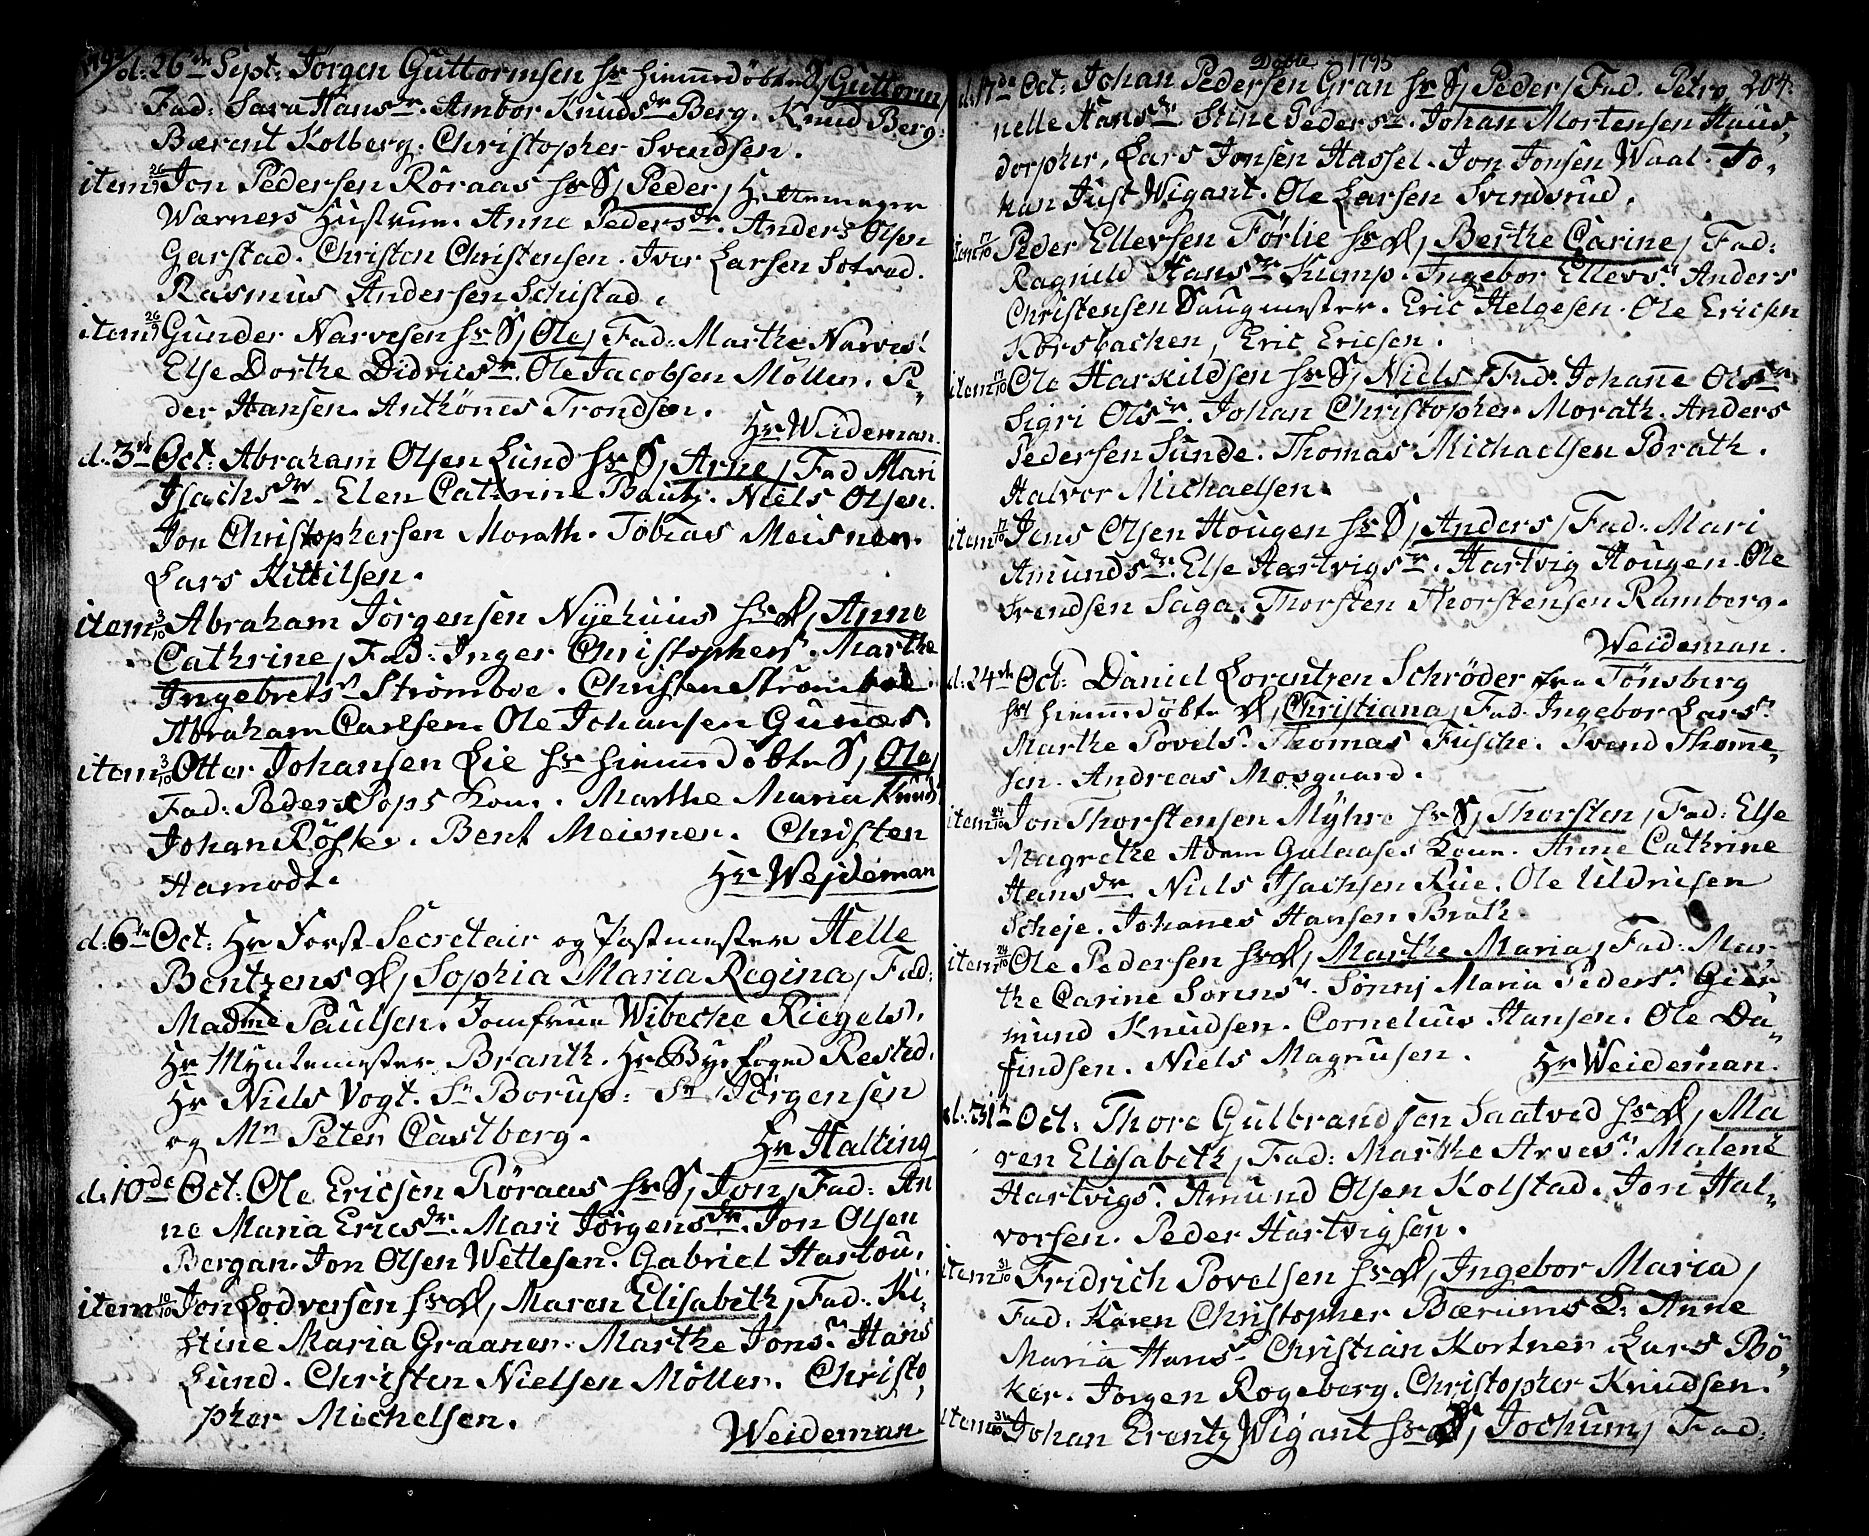 d: 26de Sept: Jörgen Guttormsen hr hiemmedöbte S, Guttorm,
Fad: Sara Hansdr. Ambor Knudsdr Berg. Knud Berg.
Bærent Kolberg. Christopher Svendsen.
item 26/9 Jon Pedersen Röraas hr S, Peder,
Wærners Hustrue. Anne Pedersdr. Anders Olsen
Garstad. Christen Christensen. Iver Larsen Sotved.
Rasmus Andersen Schistad.
item 26/9 Gunder Narvesen hr S, Ole, Fad: Marthe Narves:
Else Dorthe Didricsdr. Ole Jacobsen Möller. Pe,
der Hansen. Anthönnes Trondsen.
Hr Weideman.
d. 3de Oct: Abraham Olsen Lund hr S, Arne, Fad Mari
Isachsdr. Elen Cathrine Bautz. Niels Olsen.
Jon Christophersen Morath. Tobias Meisner.
Lars Kittilsen.
item 3/10 Abraham Jörgensen Nyehuus hr d, Anne
Cathrine, Fad: Inger Christophers. Marthe
Ingebretsr Strömboe. Christen Stromboe.
Abraham Carlsen. Ole Johansen Gunæs.
item 3/10 Otter Johansen Lie hr hiemmedöbte S, Ole,
Fad: Peder Pops Kone. Marthe Maria Knuds
Johan Röste. Bent Meisner. Christen
Hamodt.
Hr Wejdeman
d. 6te Oct: Hr Forst-Secretair og Postmester Helle
Bentzens d, Sophia Maria Regina, Fad:
Madme Paulsen. Jomfrue Wibeche Riegels.
Hr Myntemester Branth. Hr Byefoged Rested.
Hr Niels Vogt. Sr Borup: Sr Jörgensen
og Mr Peter Castberg.
Hr Halting
d. 10de Oct: Ole Ericsen Röraas hr S, Jon, Fad: An
ne Maria Ericsdr. Mari Jörgensdr. Jon Olsen
Bergan. Jon Olsen Wetlesen. Gabriel Hartou.
item 10/10 Jon Lodversen hr d, Maren Elisabeth, Fad: Ki,
stine Maria Graaner. Marthe Jonsr. Hans
Lund. Christen Nielsen Möller. Christo,
pher Michelsen.
Weideman.
Döbte 1795
204.
d. 17de Oct: Johan Pedersen Gran hr S, Peder, Fad. Petro,
nelle Hansdr. Stine Pedersr. Johan Mortensen Haus,
dorpher. Lars Jonsen Hassel. Jon Jonsen Waal. Jo,
han Just Wigant. Ole Larsen Svendsrud.
item 17/10 Peder Ellevsen Förlie hr d, Berthe Carine, Fad:
Ragnild Hansdr Kump. Ingebor Ellevsr. Anders
Christensen Saugmester. Eric Helgesen. Ole Ericsen
Korsbachen, Eric Ericsen.
item 17/10 Ole Harkildsen hr S, Niels, Fad: Johane Olsdr.
Sigri Olsdr. Johan Christopher Morath. Anders
Pedersen Sunde. Thomas Michaelsen Brath.
Halvor Michaelsen.
item 17/10 Jens Olsen Hougen hr S, Anders, Fad: Mari
Amundsdr. Else Hartvigsr. Hartvig Hougen. Ole
Svendsen Saga. Thorsten Thorstensen Ramberg.
Weideman.
d: 24de Oct: Daniel Lorentzen Schröder fra Tönsberg
hr hiemmedöbte d, Christiana, Fad: Ingebor Larsr.
Marthe Povelsr. Thomas Fusche. Svend Thome,
sen. Andreas Mosguard.
item 24/10 Jon Thorstensen Myhre hr S, Thorsten, Fad: Else
Magrethe Adam Galaases Kone. Anne Cathrine
Hansdr Niels Isachsen Rue. Ole Uldrisen
Scheje. Johanes Hansen Brath.
item 24/10 Ole Pedersen hr d, Marthe Maria, Fad: Mar,
the Carine Sorensr. Sönnj Maria Pedersr. Gier
mund Knudsen. Cornelius Hansen. Ole Da,
findsen. Niels Magnusen.
Hr Weideman.
d. 31te Oct. Thore Gulbrandsen Saatved hr d, Ma
ren Elisabeth, Fad: Marthe Arvesr. Malene
Hartvigsr. Amund Olsen Kolstad. Jon Hal,
vorsen. Peder Hartvigsen.
item 31/10 Fridrich Povelsen hr d, Ingebor Maria,
Fad. Karen Christopher Bærums K: Anne
Maria Hansr. Christian Kortner. Lars Bö,
ker. Jorgen Rogeberg. Christopher Knudsen.
item 31/10 Johan Erentz Wigant hr S, Jochum, Fad: